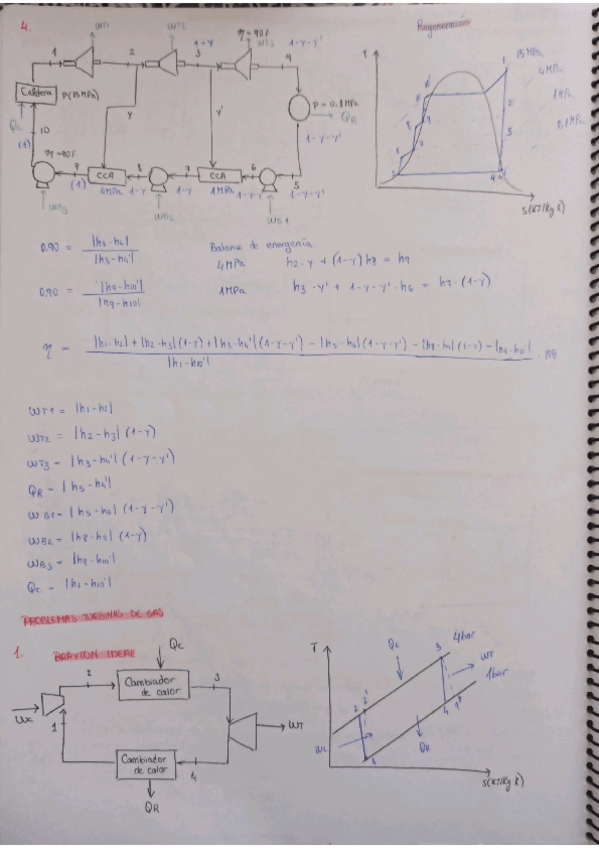 4.
Regeneración
WT1
WT2
η = 90%
WT3
1
2
1-y
3
1-y-y'
4
Caldera
P(15MPa)
Qc
y
y'
P = 0.1MPa
QR
1-y-y'
10
(1)
η=90%
9
(1)
CCA
4MPa
8
1-y
7
1-y
CCA
1MPa
6
1-y-y'
5
1-y-y'
WB3
WB2
WB1
T
15 MPa
4 MPa
1 MPa
0.1 MPa
S(KJ/Kg K)
0.90 = |h3-h4| / |h3-h4'|
Balance de energenia
4MPa h2·y + (1-y)h8 = h9
0.90 = |h9-h10'| / |h9-h10|
1MPa h3·y' + 1-y-y'·h6 = h7·(1-y)
η = |h1-h2|+|h2-h3|(1-y)+|h3-h4'|(1-y-y') - |h5-h6|(1-y-y') - |h7-h8|(1-y) - |h9-h10'| / |h1-h10'| · 100
WT1 = |h1-h2|
WT2 = |h2-h3| (1-y)
WT3 = |h3-h4'| (1-y-y')
QR = |h5-h4'|
WB1 = |h5-h6| (1-y-y')
WB2 = |h8-h7| (1-y)
WB3 = |h9-h10'|
Qc = |h1-h10'|
PROBLEMAS TURBINAS DE GAS
1.
BRAYTON IDEAL
Qc
2
Cambiador
de calor
3
Wc
1
WT
Cambiador
de calor
4
QR
T
Qc
3
4bar
WT
1bar
2
2'
Wc
4
4'
QR
1
S(KJ/Kg K)